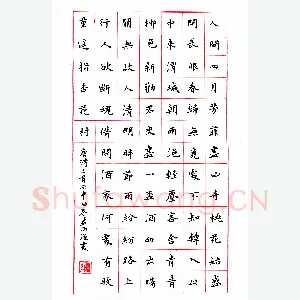 人間四月芳菲盡山寺桃花始盛
開長恨春歸無覓處不知轉入此
中来渭城朝雨浥輕塵客舍青青
柳色新勸君更盡一杯酒西出陽
關無故人清明時節雨紛紛路上
行人欲断魂借問酒家何處有牧
童遥指杏花村 唐詩三首
ShuFawang.CN